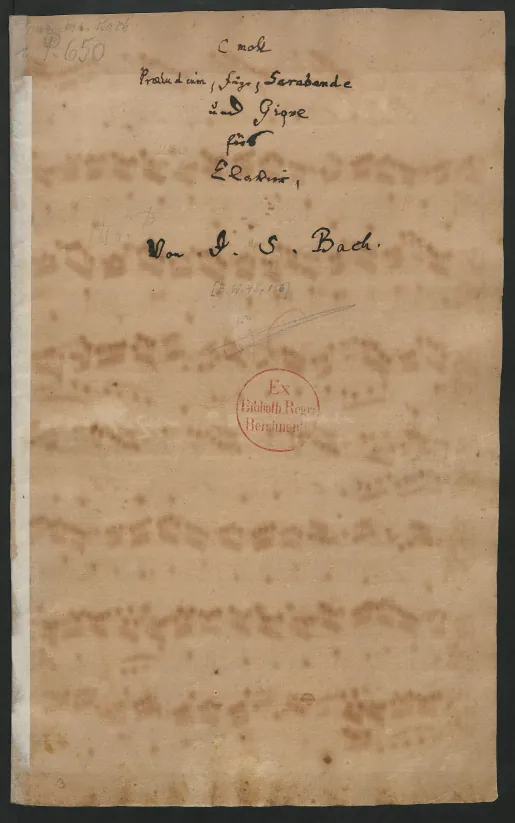 P. 650
C moll
Præludium, Fuge, Sarabande
und Gigue
fürs
Clavier,
Von J. S. Bach.
Ex
Biblioth. Regia
Berolinensi